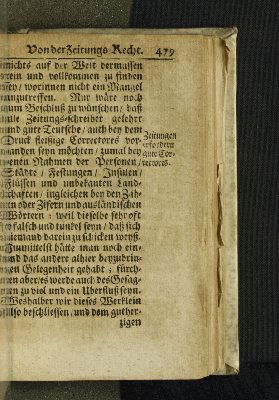 Von der Zeitungs Recht. 479
nichts auf der Welt dermassen
rein und vollkommen zu finden
sey / worinnen nicht ein Mangel
anzutreffen. Nur wäre noch
zum Beschluß zu wünschen / daß
alle Zeitungs-schreiber gelehrt
und gute Teutsche / auch bey dem
Druck fleißige Correctores vor-
handen seyn möchten / zumal bey
denen Nahmen der Personen /
Städte / Festungen / Insulen /
Flüssen und unbekanten Land-
schaften / ingleichen bey den Zah-
len oder Zifern und ausländischen
Wörtern : weil dieselbe sehr oft
so falsch und tunkel seyn / daß sich
niemand darein zu schicken weyß.
Immittelst hätte man noch ein-
und das andere alhier beyzubrin-
gen Gelegenheit gehabt ; fürch-
ten aber / es werde auch des Gesag-
ten zu viel und ein Uberfluß seyn.
Weshalber wir dieses Werklein
also beschliessen / und dem guther-
zigen
Zeitungen
erfordern
gute Cor-
rectores.